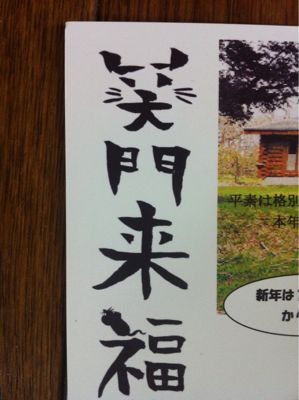 笑門来福
平素は格別
本年
新年は
から